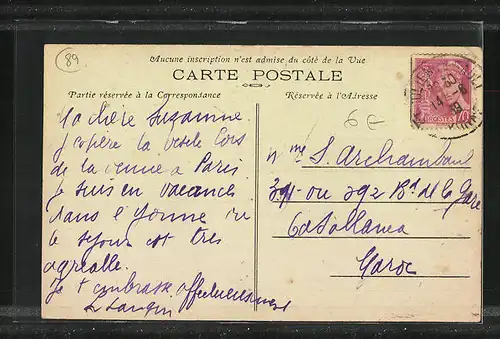 89
Aucune inscription n'est admise du côté de la Vue
CARTE POSTALE
Partie réservée à la Correspondance
Réservée à l'Adresse
6 €
POSTES 70
Ma chère Suzanne
J'espère la
de la venue à Paris
Je suis en vacances
dans l'Yonne
le séjour est très
agréable.
Je t'embrasse affectueusement
Mme S. Archambaud
391 ou 392 Bd de la Gare
Casablanca
Maroc